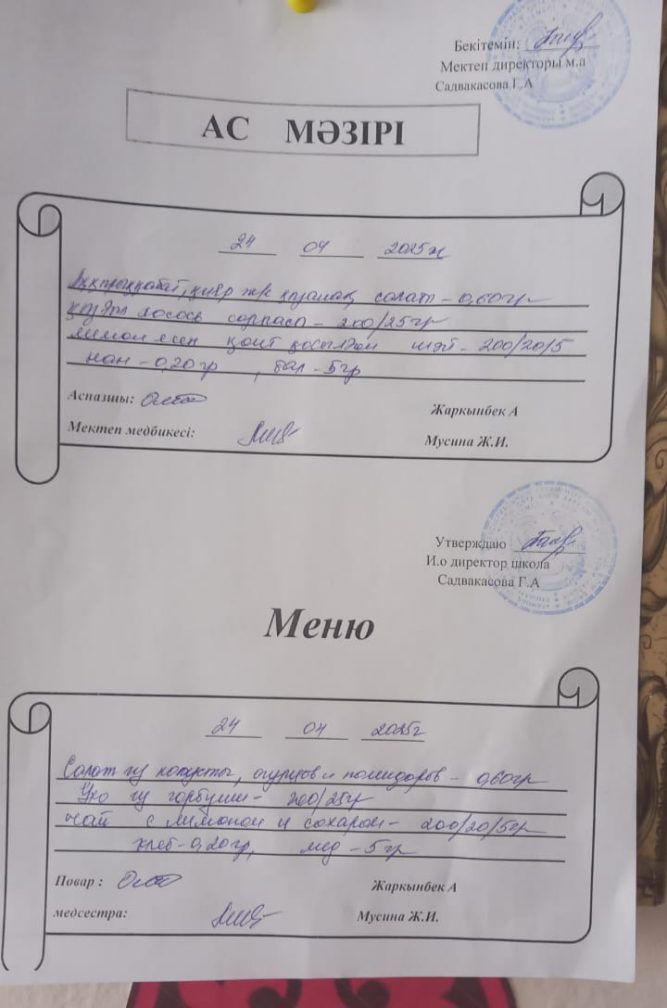 Бекітемін:
Мектеп директоры м.а
Садвакасова Г.А
АС МӘЗІРІ
24 04 2025ж
қияр және қызанақ салаты - 0,60гр
сорпасы - 200/25гр
лимон мен қант қосылған шәй - 200/20/5
нан - 0,20 гр, бал - 5гр
Аспазшы:
Жаркынбек А
Мектеп медбикесі:
Мусина Ж.И.
Утверждаю
И.о директор школа
Садвакасова Г.А
Меню
24 04 2025г
Салат из капусты, огурцов и помидоров - 0,60гр
Уха из горбуши - 200/25гр
чай с лимоном и сахаром - 200/20/5гр
хлеб - 0,20гр, мед - 5гр
Повар :
Жаркынбек А
медсестра:
Мусина Ж.И.